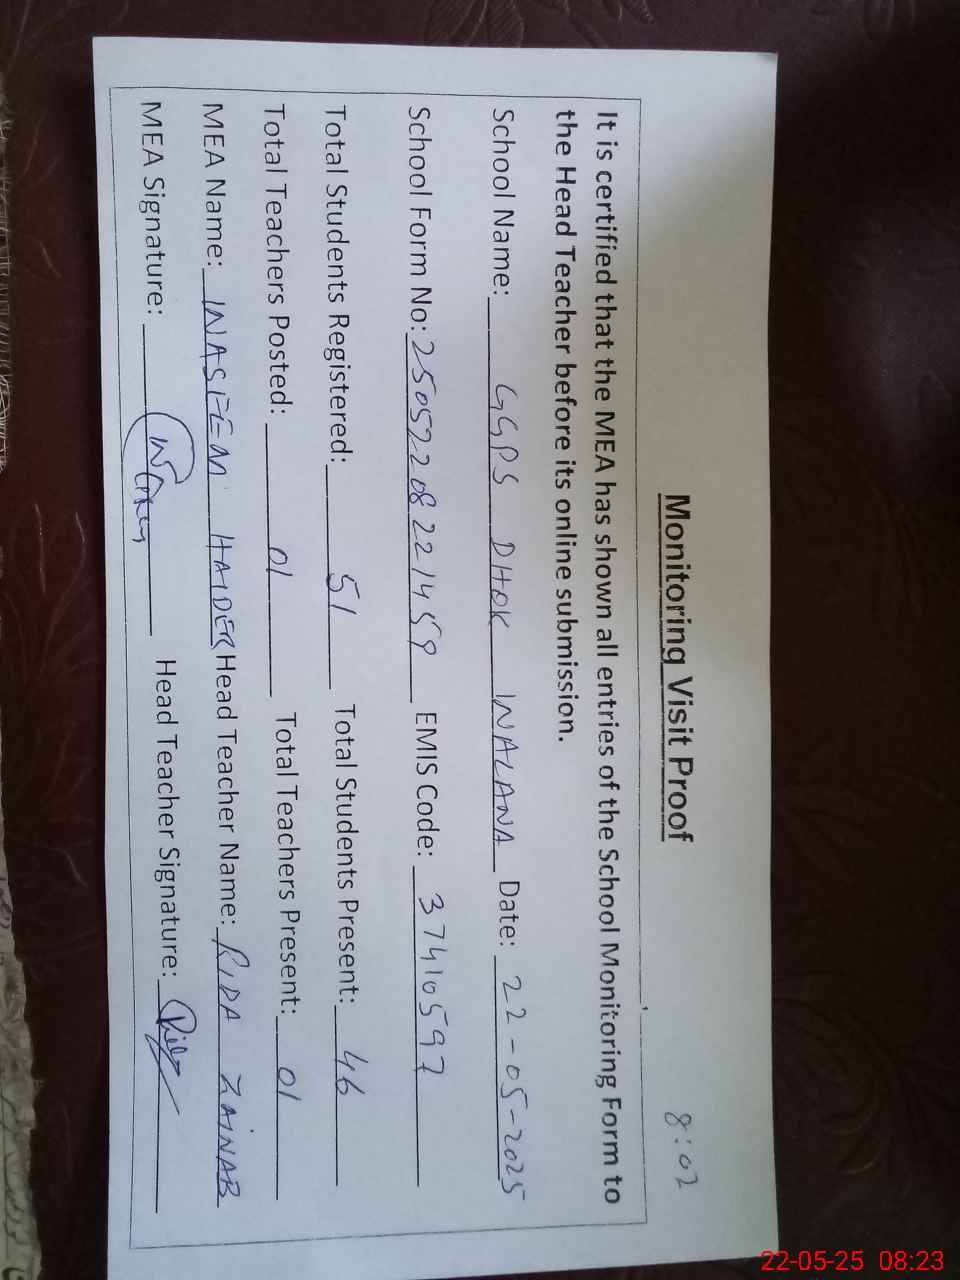 8:02
Monitoring Visit Proof
It is certified that the MEA has shown all entries of the School Monitoring Form to
the Head Teacher before its online submission.
School Name: GGPS DHOK NALANA Date: 22-05-2025
School Form No: 25052208221459 EMIS Code: 37410597
Total Students Registered: 51 Total Students Present: 46
Total Teachers Posted: 01 Total Teachers Present: 01
MEA Name: NASEEM HAIDER Head Teacher Name: RIDA ZAINAB
MEA Signature: Head Teacher Signature: Rida
22-05-25 08:23